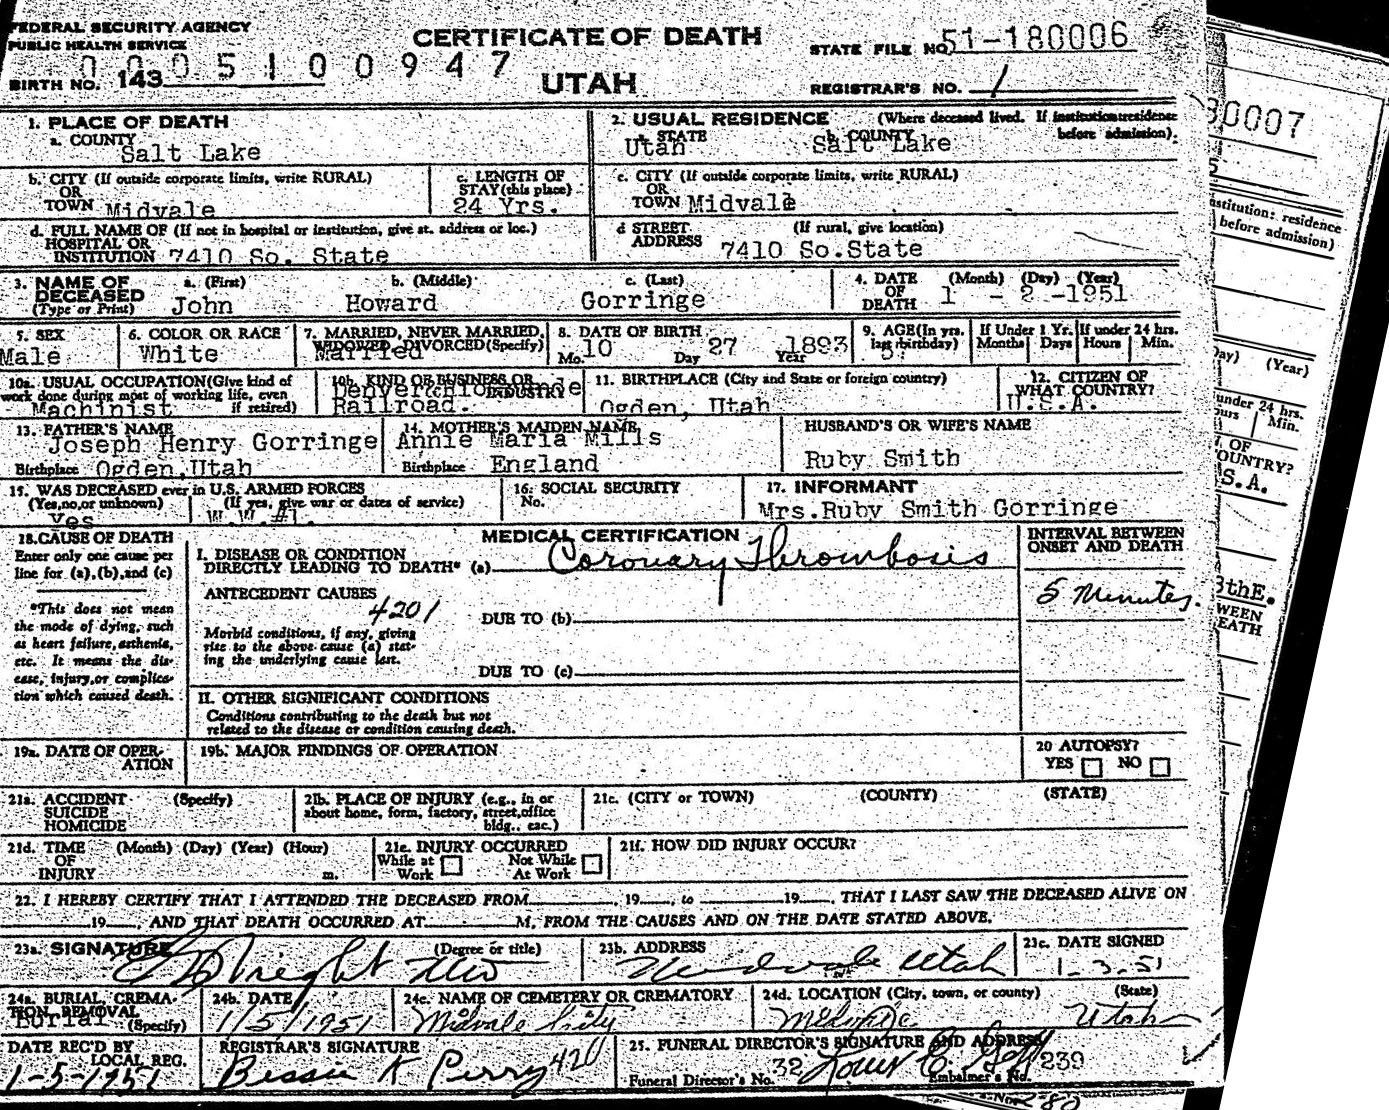 FEDERAL SECURITY AGENCY
PUBLIC HEALTH SERVICE
CERTIFICATE OF DEATH
STATE FILE NO. 51-180006
0005100947
BIRTH NO. 143
UTAH
REGISTRAR'S NO. 1
1. PLACE OF DEATH
a. COUNTY
Salt Lake
2. USUAL RESIDENCE (Where deceased lived. If institution: residence before admission).
a. STATE b. COUNTY
Utah Salt Lake
b. CITY (If outside corporate limits, write RURAL)
OR
TOWN Midvale
c. LENGTH OF
STAY (this place)
24 Yrs.
c. CITY (If outside corporate limits, write RURAL)
OR
TOWN Midvale
d. FULL NAME OF (If not in hospital or institution, give st. address or loc.)
HOSPITAL OR
INSTITUTION 7410 So. State
d STREET (If rural, give location)
ADDRESS 7410 So.State
3. NAME OF DECEASED (Type or Print)
a. (First) b. (Middle) c. (Last)
John Howard Gorringe
4. DATE OF DEATH (Month) (Day) (Year)
1 - 2 -1951
5. SEX
Male
6. COLOR OR RACE
White
7. MARRIED, NEVER MARRIED,
WIDOWED, DIVORCED (Specify)
Married
8. DATE OF BIRTH
Mo. 10 Day 27 Year 1893
9. AGE (In yrs. last birthday)
If Under 1 Yr. Months Days
If under 24 hrs. Hours Min.
10a. USUAL OCCUPATION (Give kind of
work done during most of working life, even
if retired)
Machinist
10b. KIND OF BUSINESS OR
INDUSTRY
Railroad.
11. BIRTHPLACE (City and State or foreign country)
Ogden, Utah
12. CITIZEN OF
WHAT COUNTRY?
U.S.A.
13. FATHER'S NAME
Joseph Henry Gorringe
Birthplace Ogden,Utah
14. MOTHER'S MAIDEN NAME
Annie Maria Mills
Birthplace England
HUSBAND'S OR WIFE'S NAME
Ruby Smith
15. WAS DECEASED ever in U.S. ARMED FORCES
(Yes, no, or unknown) (If yes, give war or dates of service)
Yes W.W.#1.
16. SOCIAL SECURITY
No.
17. INFORMANT
Mrs.Ruby Smith Gorringe
18. CAUSE OF DEATH
Enter only one cause per
line for (a), (b), and (c)
*This does not mean
the mode of dying, such
as heart failure, asthenia,
etc. It means the dis-
ease, injury, or complica-
tion which caused death.
MEDICAL CERTIFICATION
I. DISEASE OR CONDITION
DIRECTLY LEADING TO DEATH* (a) Coronary Thrombosis
ANTECEDENT CAUSES
4201
DUE TO (b)
Morbid conditions, if any, giving
rise to the above cause (a) stat-
ing the underlying cause last.
DUE TO (c)
II. OTHER SIGNIFICANT CONDITIONS
Conditions contributing to the death but not
related to the disease or condition causing death.
INTERVAL BETWEEN
ONSET AND DEATH
5 Minutes.
19a. DATE OF OPER-
ATION
19b. MAJOR FINDINGS OF OPERATION
20 AUTOPSY?
YES NO
21a. ACCIDENT (Specify)
SUICIDE
HOMICIDE
21b. PLACE OF INJURY (e.g., in or
about home, form, factory, street, office
bldg., etc.)
21c. (CITY or TOWN) (COUNTY) (STATE)
21d. TIME (Month) (Day) (Year) (Hour)
OF
INJURY m.
21e. INJURY OCCURRED
While at Work Not While At Work
21f. HOW DID INJURY OCCUR?
22. I HEREBY CERTIFY THAT I ATTENDED THE DECEASED FROM , 19 , to 19 , THAT I LAST SAW THE DECEASED ALIVE ON
19 , AND THAT DEATH OCCURRED AT M, FROM THE CAUSES AND ON THE DATE STATED ABOVE.
23a. SIGNATURE (Degree or title)
23b. ADDRESS
Midvale Utah
23c. DATE SIGNED
1.3.51
24a. BURIAL, CREMA-
TION, REMOVAL
(Specify)
Burial
24b. DATE
1/5/1951
24c. NAME OF CEMETERY OR CREMATORY
Midvale City
24d. LOCATION (City, town, or county) (State)
Midvale Utah
DATE REC'D BY
LOCAL REG.
1-5-1951
REGISTRAR'S SIGNATURE
Bessie K Perry 420
25. FUNERAL DIRECTOR'S SIGNATURE AND ADDRESS
Funeral Director's No. 32 Embalmer's No. 239
80007
residence
before admission)
(Year)
under 24 hrs.
Min.
OF
COUNTRY?
S.A.